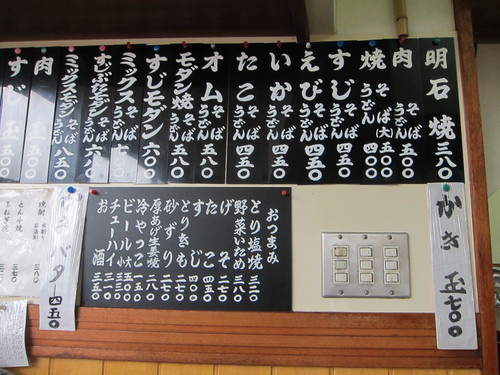 明石焼 三八〇
肉 そば うどん 五〇〇
焼 そば (大)五〇〇 うどん 四〇〇
すじ そば うどん 四五〇
えび そば うどん 四五〇
いか そば うどん 四五〇
たこ そば うどん 四五〇
オム そば うどん 五八〇
モダン焼 そば うどん 五八〇
すじモダン 六〇〇
ミックス そば うどん
すじぶたモダン そば うどん
ミックスモダン そば うどん 八五〇
肉 玉 五〇〇
すじ玉 五〇〇
かき玉 七〇〇
おつまみ
とり塩焼 三二〇
野菜いため 三八〇
げそ 二七〇
たこ 四五〇
すじ 四〇〇
とりきも 二七〇
砂ずり 二七〇
厚あげ生姜焼 二八〇
冷やっこ
ビール
チューハイ 三〇〇
お酒 三五〇
バタ 四五〇
焼酎
三八〇
とん平焼 三七〇